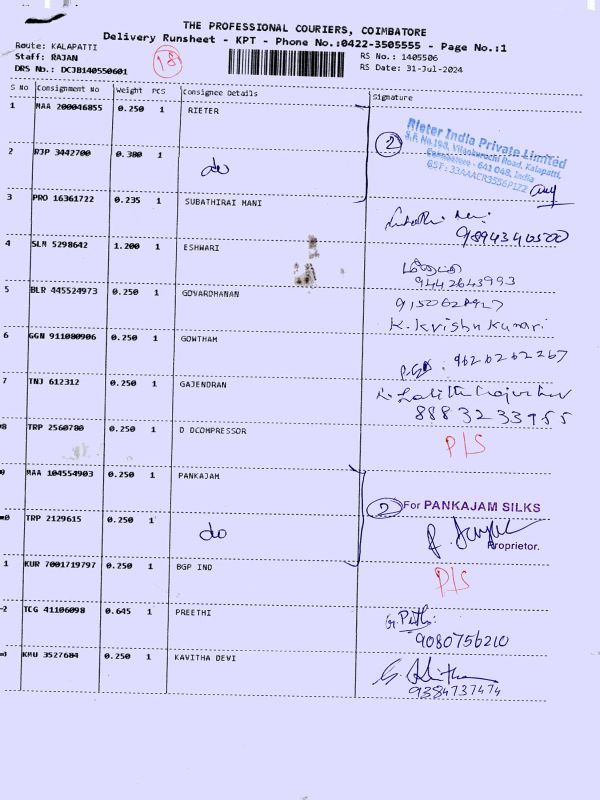 THE PROFESSIONAL COURIERS, COIMBATORE
Delivery Runsheet - KPT - Phone No.:0422-3505555 - Page No.:1
Route: KALAPATTI
Staff: RAJAN
DRS No.: DCJB140550601
18
RS No.: 1405506
RS Date: 31-Jul-2024
S No Consignment No Weight PCS Consignee Details Signature
1 MAA 200046855 0.250 1 RIETER
2 Rieter India Private Limited
S.F. No.198, Vilankurichi Road, Kalapatti,
Coimbatore - 641 048, India
GST : 33AAACR3556P1ZZ
2 RJP 3442700 0.380 1 do
3 PRO 16361722 0.235 1 SUBATHIRAI MANI
9894346500
4 SLM 5298642 1.200 1 ESHWARI
9442643993
5 BLR 445524973 0.250 1 GOVARDHANAN
K. Krishna Kumari
6 GGN 911080906 0.250 1 GOWTHAM
9626262267
7 TNJ 612312 0.250 1 GAJENDRAN
8883233955
8 TRP 2560780 0.250 1 D DCOMPRESSOR P/S
MAA 104554903 0.250 1 PANKAJAM
2 For PANKAJAM SILKS
Proprietor.
TRP 2129615 0.250 1 do
1 KUR 7001719797 0.250 1 BGP IND P/S
2 TCG 41106098 0.645 1 PREETHI
9080756210
KMU 3527684 0.250 1 KAVITHA DEVI
9384737474